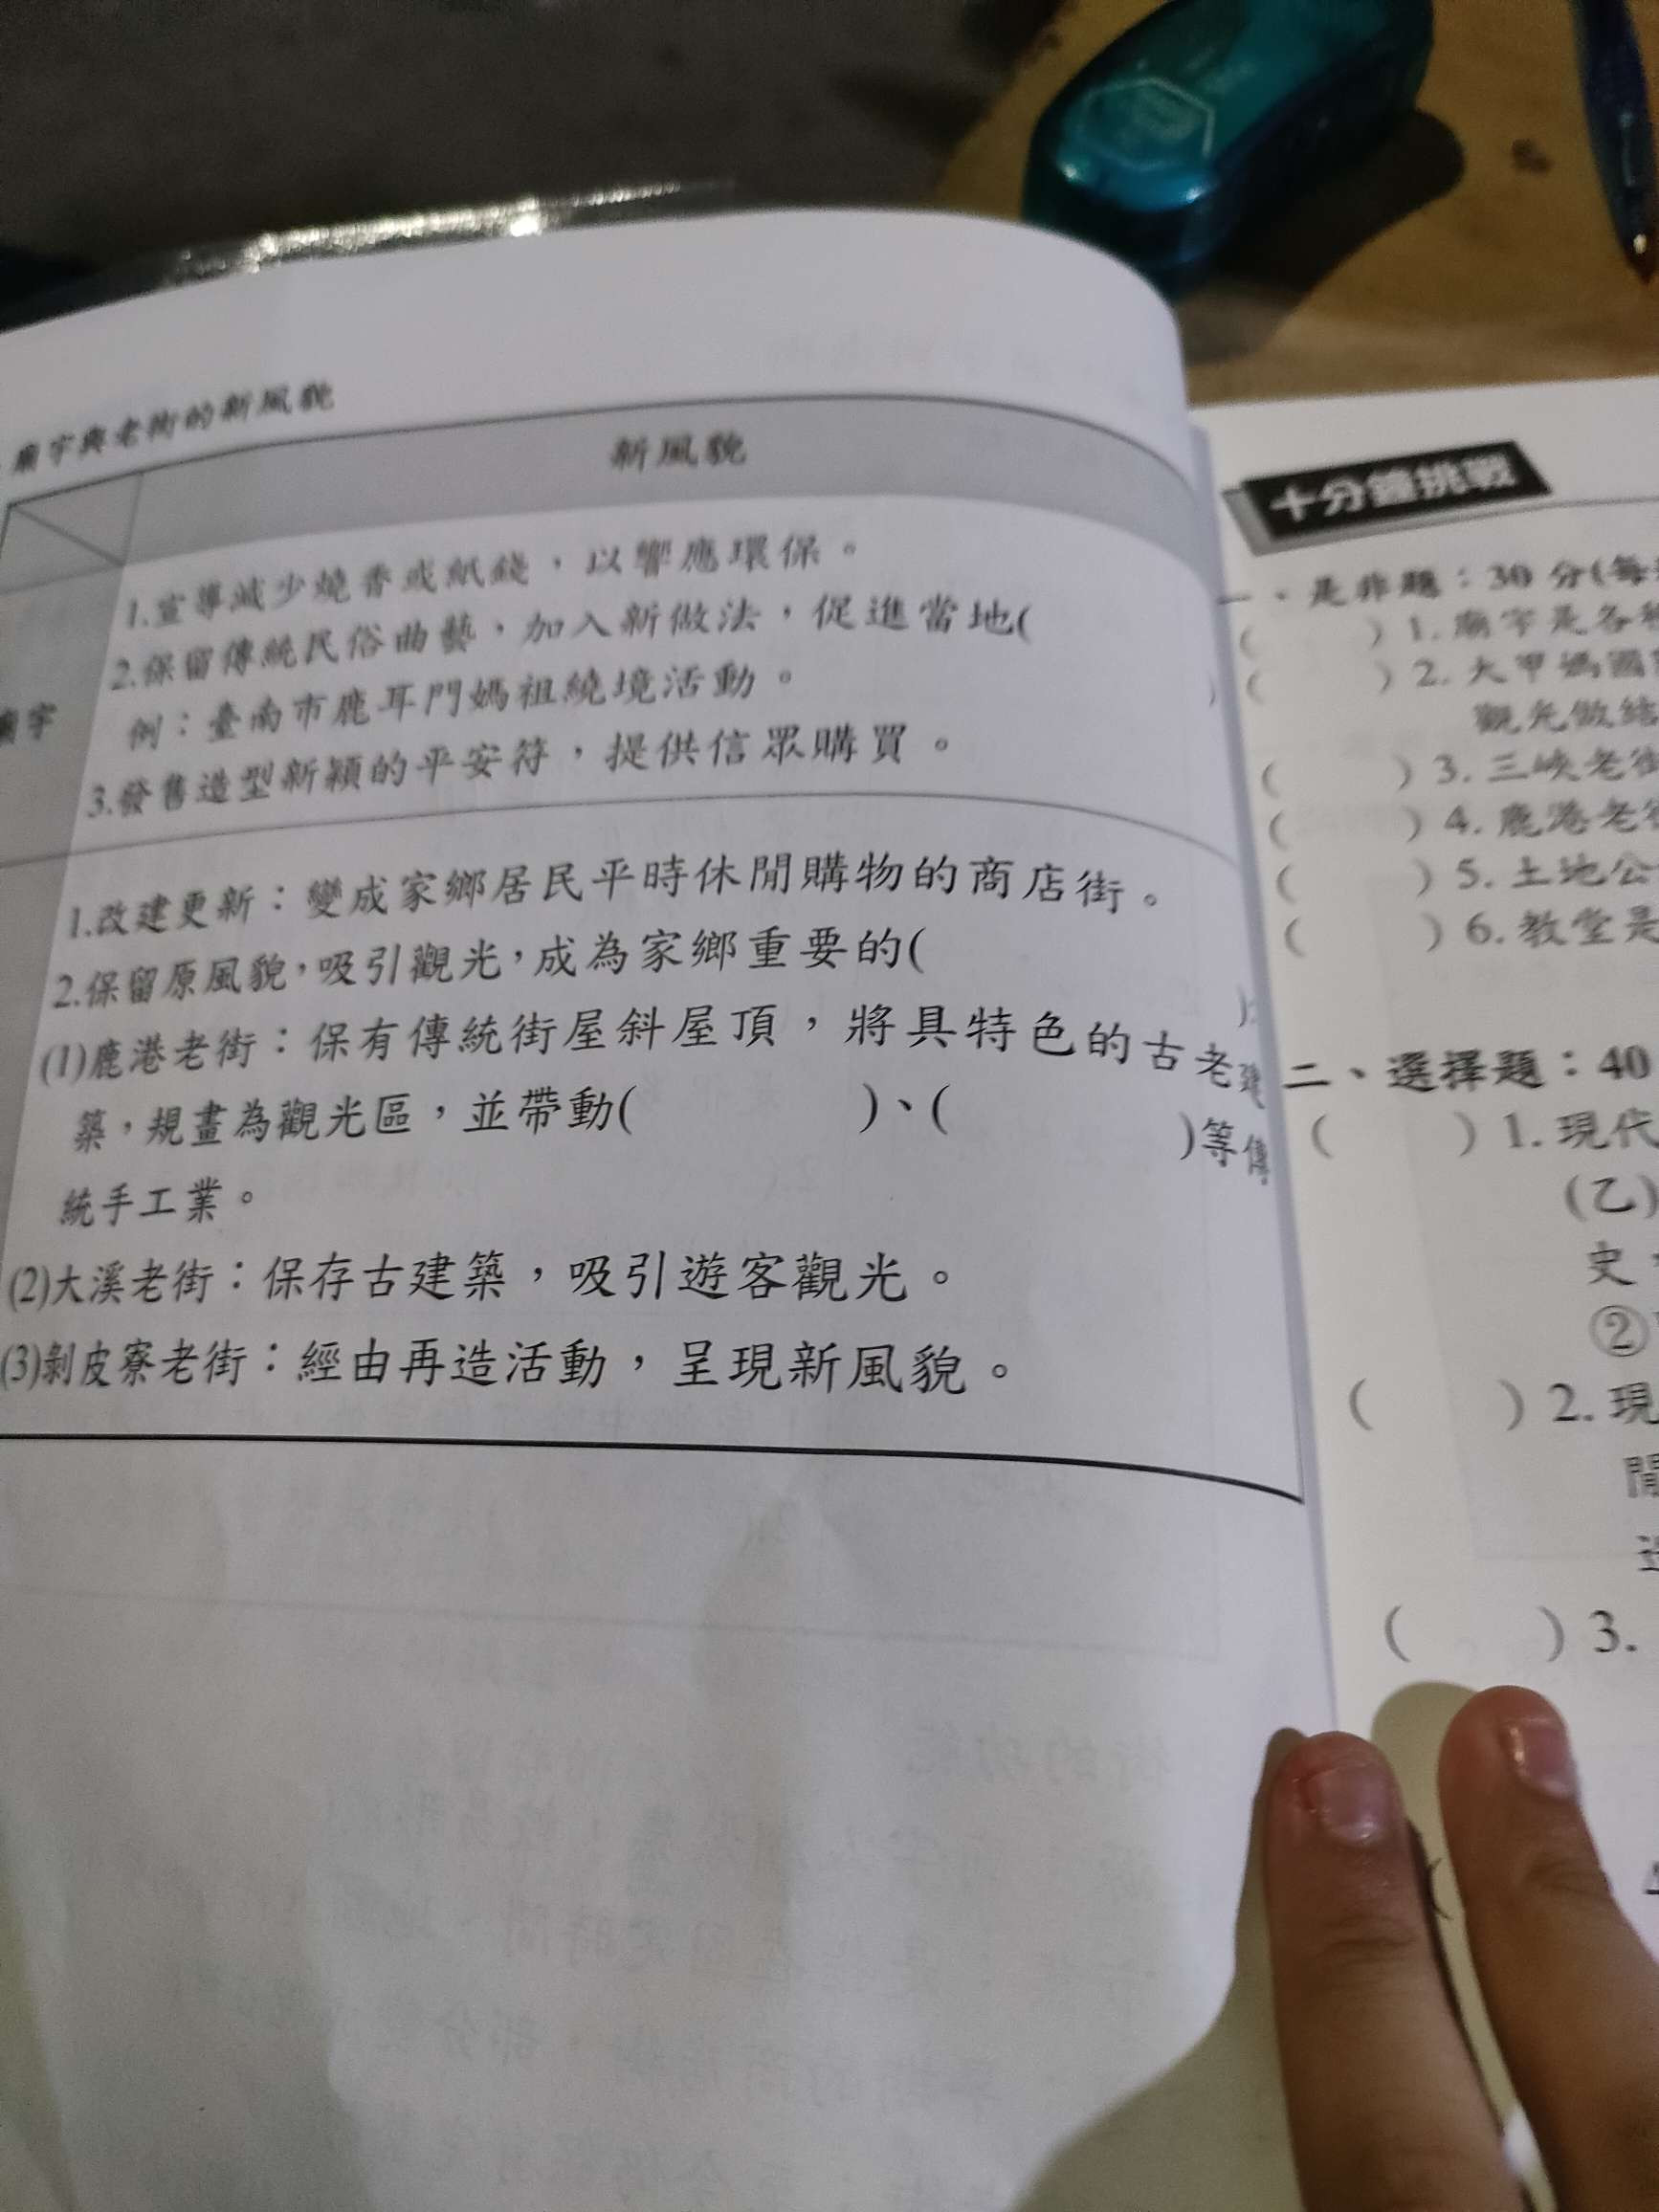 廟宇與老街的新風貌
新風貌
廟宇
1.宣導減少燒香或紙錢，以響應環保。
2.保留傳統民俗曲藝，加入新做法，促進當地( )
例：臺南市鹿耳門媽祖繞境活動。
3.發售造型新穎的平安符，提供信眾購買。
1.改建更新：變成家鄉居民平時休閒購物的商店街。
2.保留原風貌，吸引觀光，成為家鄉重要的( )
(1)鹿港老街：保有傳統街屋斜屋頂，將具特色的古老建
築，規畫為觀光區，並帶動( )、( )等傳
統手工業。
(2)大溪老街：保存古建築，吸引遊客觀光。
(3)剝皮寮老街：經由再造活動，呈現新風貌。
十分鐘挑戰
一、是非題：30 分(每
( ) 1. 廟宇是各種
( ) 2. 大甲媽國
觀光做結
( ) 3. 三峽老街
( ) 4. 鹿港老街
( ) 5. 土地公
( ) 6. 教堂是
二、選擇題：40
( ) 1. 現代
(乙)
史，
②
( ) 2. 現
閒
( ) 3.